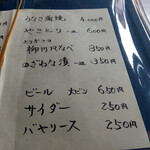 うなぎ蒲焼 4,000円
やきとり 一皿 600円
どぜう
柳川なべ 850円
のざわな漬 一皿 350円
ビール 大ビン 650円
サイダー 250円
バヤリース 250円